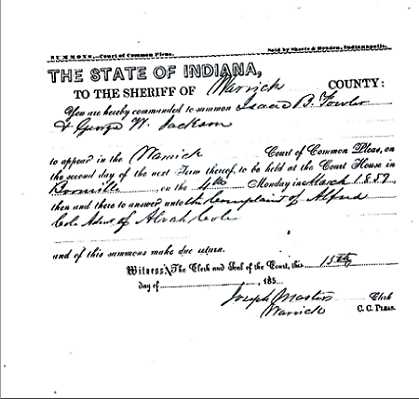 SUMMONS,—Court of Common Pleas. Sold by Sheets & Braden, Indianapolis.
THE STATE OF INDIANA,
TO THE SHERIFF OF Warrick COUNTY:
You are hereby commanded to summon Isaac B. Fowler
& George W. Jackson
to appear in the Warrick Court of Common Pleas, on
the second day of the next Term thereof, to be held at the Court House in
Boonville on the 4th Monday in March 1857,
then and there to answer unto the Complaint of Alfred
Cole Admr. of Alvah Cole
and of this summons make due return.
Witness, The Clerk and Seal of the Court, this 15th
day of 185
Joseph Masters Clerk
Warrick C. C. PLEAS.